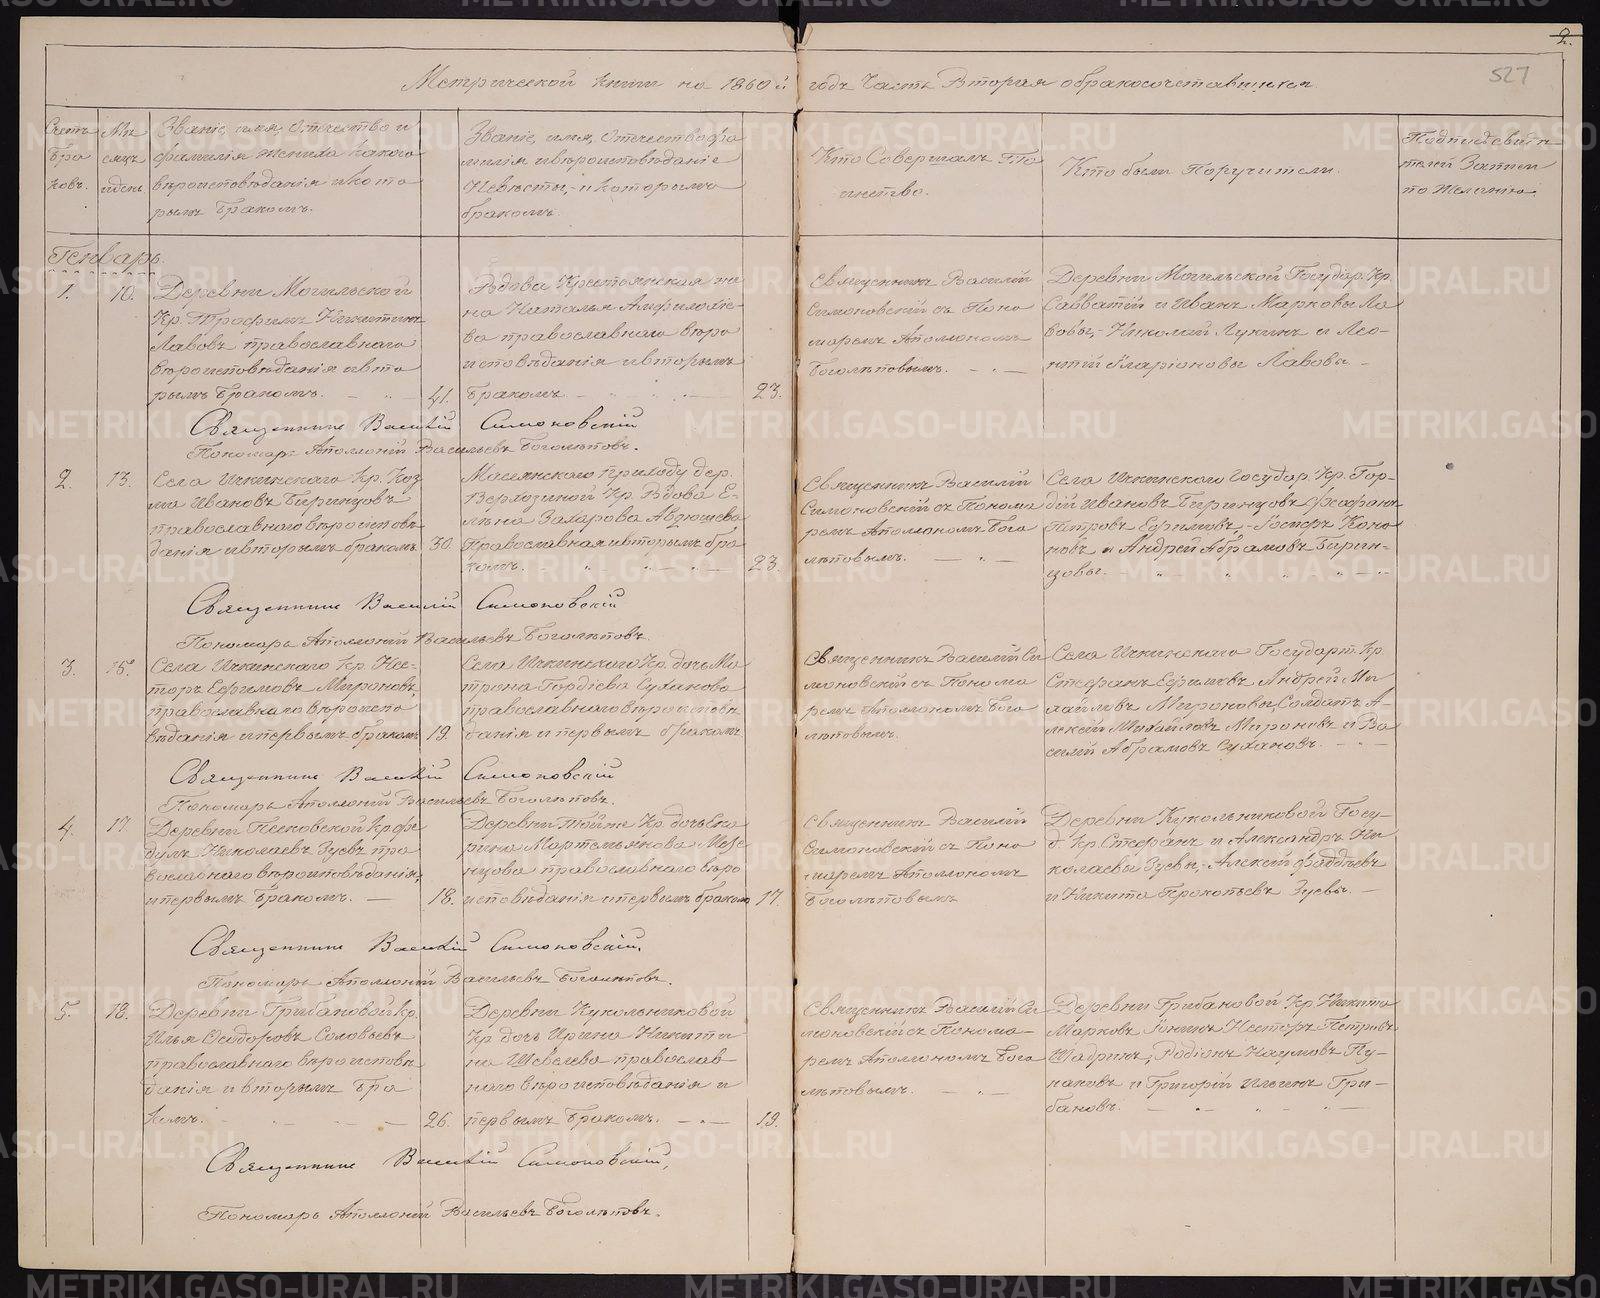 2.
527
Метрической книги на 1860й годъ Часть Вторая о бракосочетавшихся
Счетъ
бра
ковъ.
Мѣ
сяцъ
и день
Званіе, имя, отчество и
фамилія жениха какого
вѣроисповѣданія и кото
рымъ бракомъ.
Званіе, имя, отчество фа
милія и вѣроисповѣданіе
невѣсты, и которымъ
бракомъ.
Кто Совершалъ Та
инство.
Кто были Поручители.
Подпись свидѣ
телей Записи
по желанію.
Генварь.
1. 10.
Деревни Могильской
Кр. Трофимъ Никитинъ
Лавовъ православнаго
вѣроисповѣданія и вто
рымъ бракомъ. 41.
Вдова Крестьянская же
на Наталья Амфилохіе-
ва православнаго вѣро
исповѣданія и вторымъ
бракомъ. 23.
Священникъ Василій
Симоновскій съ Поно
маремъ Аполлономъ
Боголѣповымъ.
Деревни Могильской Государ. Кр.
Савватій и Иванъ Марковы Ла
вовы, Николай Лукинъ и Лео-
нтій Иларіоновы Лавовы.
Священникъ Василій Симоновскій
Пономарь Аполлоній Васильевъ Боголѣповъ.
2. 13.
Села Ичкинскаго Кр. Коз
ма Ивановъ Биринцовъ
православнаго вѣроисповѣ
данія и вторымъ бракомъ 30.
Маслянскаго приходу дер.
Верхозиной Кр. Вдова Е-
лѣна Захарова Авдюшева
Православная и вторымъ бра
комъ. 23.
Священникъ Василій
Симоновскій съ Понома
ремъ Аполлономъ Бого
лѣповымъ.
Села Ичкинскаго Государ. Кр. Гор-
дій Ивановъ Биринцовъ,
Петровъ Ефимовъ, Несторъ Коно
новъ и Андрей Абрамовъ Бирин-
цовы.
Священникъ Василій Симоновскій
Пономарь Аполлоній Васильевъ Боголѣповъ.
3. 15.
Села Ичкинскаго Кр. Нес-
торъ Ефимовъ Мироновъ,
православнаго вѣроиспо
вѣданія и первымъ бракомъ 19.
Села Ичкинскаго Кр. дочь Ма
трона Гордіева Суханова
православнаго вѣроисповѣ
данія и первымъ бракомъ
Священникъ Василій Си
моновскій съ Понома
ремъ Аполлономъ Бого
лѣповымъ.
Села Ичкинскаго Государт. Кр.
Стефанъ Ефимовъ, Андрей Ми
хайловъ Мироновы, Солдатъ А-
лексій Михайловъ Мироновъ и Ва
силій Абрамовъ Сухановъ.
Священникъ Василій Симоновскій
Пономарь Аполлоній Васильевъ Боголѣповъ.
4. 17.
Деревни Песковской Кр. Фе
дулъ Николаевъ Зуевъ пра
вославнаго вѣроисповѣданія,
и первымъ бракомъ. 18.
Деревни Кр. дочь Ека
рина Мартемьянова Мезе
нцова православнаго вѣро
исповѣданія и первымъ бракомъ 17.
Священникъ Василій
Симоновскій съ Поно
маремъ Аполлономъ
Боголѣповымъ
Деревни Кукольниковой Госу-
д. Кр. Стефанъ и Александръ Ни
колаевы Зуевы, Алексій Фаддѣевъ
и Никита Прокопьевъ Зуевы.
Священникъ Василій Симоновскій.
Пономарь Аполлоній Васильевъ Боголѣповъ.
5. 18.
Деревни Грибановой Кр.
Илья Ѳеодоровъ Соловьевъ
православнаго вѣроисповѣ
данія и вторымъ бра
комъ. 26.
Деревни Кукольниковой
Кр. дочь Ирина Никити
на Шевелева православ-
наго вѣроисповѣданія и
первымъ бракомъ. 19.
Священникъ Василій Си
моновскій съ Понома-
ремъ Аполлономъ Бого
лѣповымъ.
Деревни Грибановой Кр. Никита
Марковъ Несторъ Петровъ
Шадринъ, Родіонъ Наумовъ Пу-
наковъ и Григорій Ильинъ Гри-
бановъ.
Священникъ Василій Симоновскій,
Пономарь Аполлоній Васильевъ Боголѣповъ.
METRIKI.GASO-URAL.RU